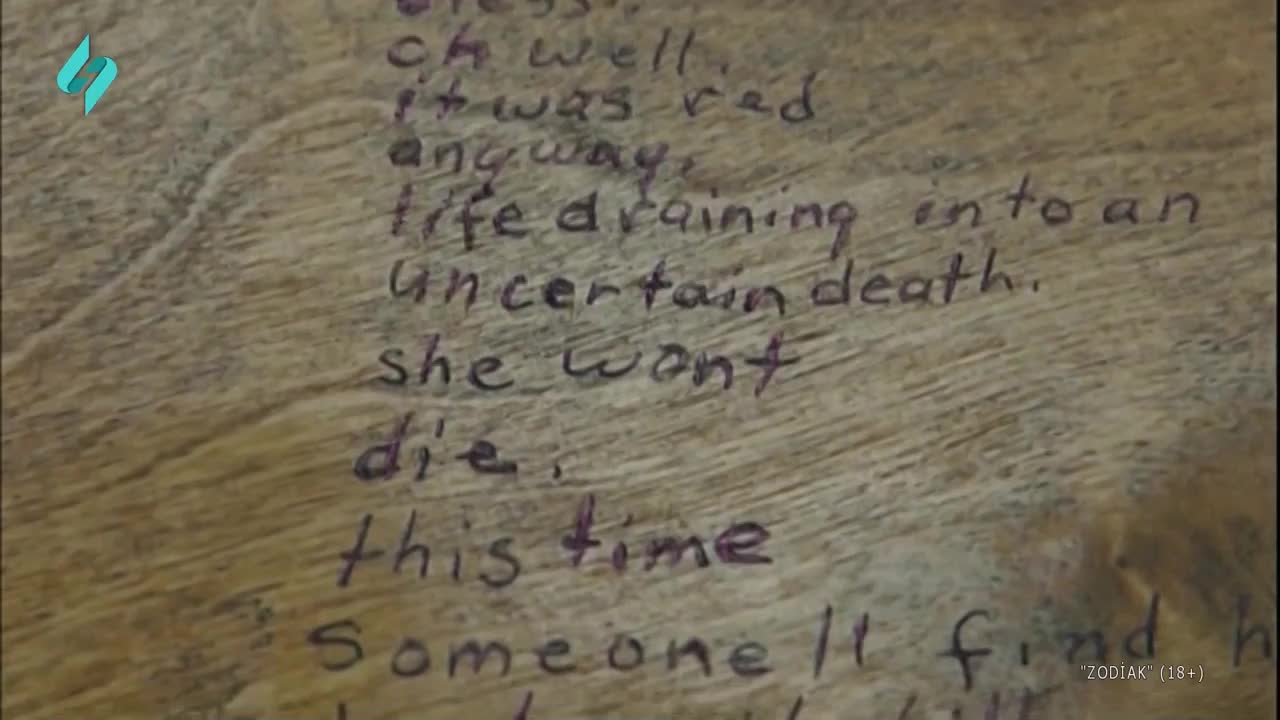 oh well.
it was red
anyway.
life draining into an
uncertain death.
she wont
die.
this time
Someone ll find h
"ZODİAK" (18+)